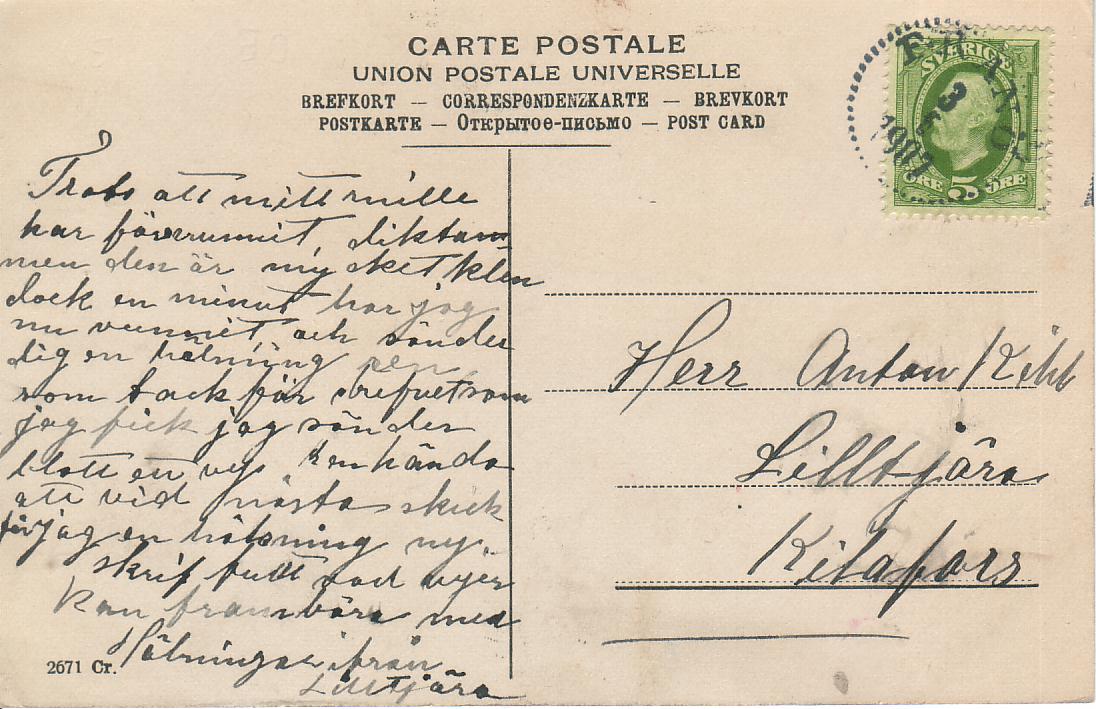 CARTE POSTALE
UNION POSTALE UNIVERSELLE
BREFKORT — CORRESPONDENZKARTE — BREVKORT
POSTKARTE — Открытое-письмо — POST CARD
SVERIGE
5
ÖRE ÖRE
3
1907
Trots att mitt snille
har försvunnit, diktan
men den är mycket klen
dock en minut har jag
nu vunnit och sänder
dig en hälsning ren
som tack för brefvet som
jag fick jag sänder
blott en vy kanhända
att vid nästa skick
får jag en hälsning ny.
skrif fullt vad vyer
kan frambära med
Hälsningar från
Lilltjära
2671 Cr.
Herr Anton
Lilltjära
Kilafors